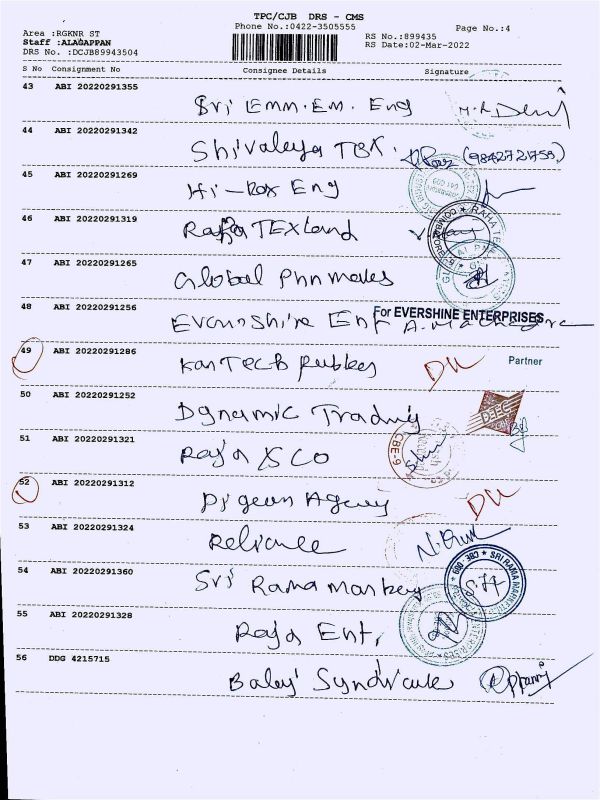 TPC/CJB DRS - CMS
Phone No.:0422-3505555
Page No.:4
Area :RGKNR ST
RS No.:899435
Staff :ALAGAPPAN
RS Date:02-Mar-2022
DRS No. :DCJB89943504
S No Consignment No Consignee Details Signature
43 ABI 20220291355
Sri Emm.Em. Eng
44 ABI 20220291342
Shivalaya TBK. (9842721755)
45 ABI 20220291269
Hi-Rox Eng
46 ABI 20220291319
Raja TEXLand
47 ABI 20220291265
Global
48 ABI 20220291256
For EVERSHINE ENTERPRISES
49 ABI 20220291286
KanTech Rubbers
Partner
50 ABI 20220291252
Dynamic Trading
51 ABI 20220291321
Raja & CO
CBE-9
52 ABI 20220291312
Pigeon Agency
53 ABI 20220291324
Reliance
54 ABI 20220291360
Sri Rama Markey
55 ABI 20220291328
Raja Ent,
56 DDG 4215715
Balaji Syndicate